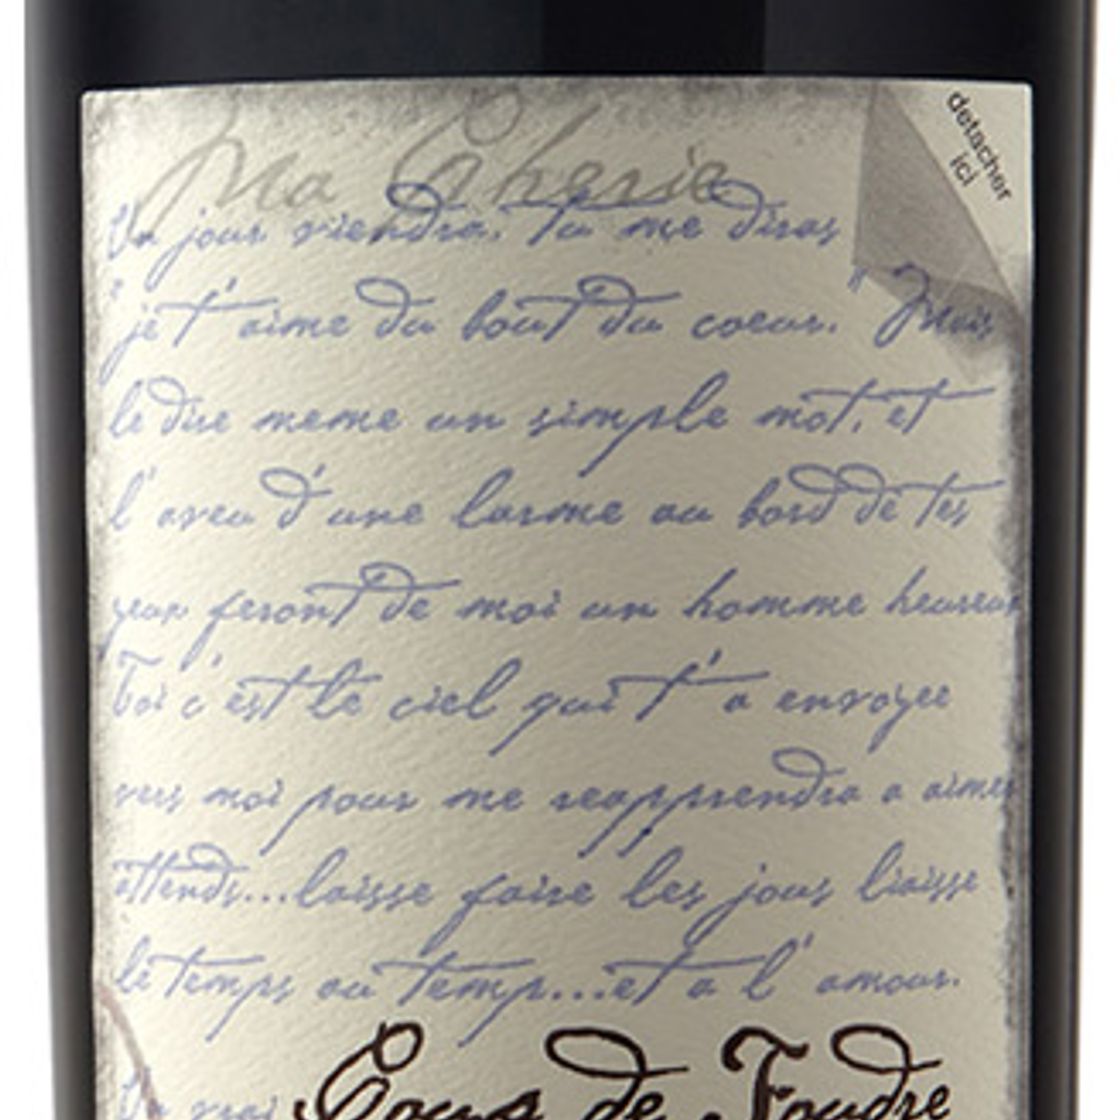 Ma Cherie
detacher
ici
Un jour viendra. Tu me diras
" je t'aime du bout du coeur. " Mais
le dire meme un simple mot, et
l'aveu d'une larme au bord de tes
yeux feront de moi un homme heureux
Toi c'est le ciel qui t'a envoyee
vers moi pour me reapprendra a aimer
attends...laisse faire les jous liaisse
le temps au temps...et a l'amour.
Un vrai
Coup de Foudre